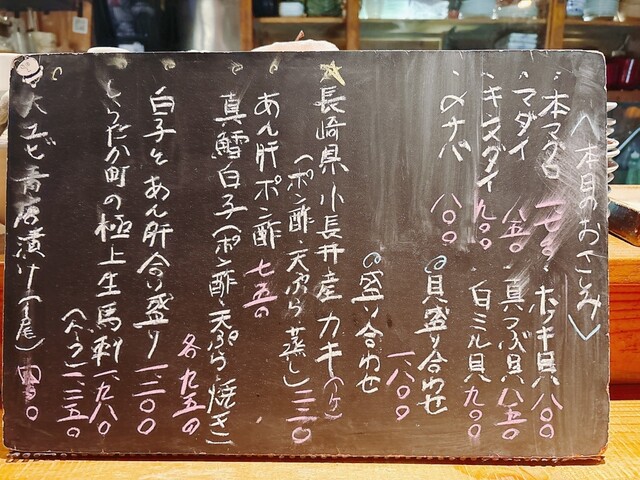 〈本日のおさしみ〉
・本マグロ
・ホッキ貝 八〇〇
・マダイ 八五〇
・真つぶ貝 八五〇
・キンメダイ 九〇〇
・白ミル貝 九〇〇
・〆サバ 八〇〇
◎貝盛り合わせ 一八〇〇
◎盛り合わせ
長崎県小長井産カキ(1ケ)
(ポン酢・天ぷら・蒸し) 三三〇
あん肝ポン酢 七五〇
真鱈白子(ポン酢・天ぷら・焼き)
各九五〇
白子とあん肝合い盛り 一三〇〇
の極上生馬刺 一九八〇
(ハーフ) 一二五〇
大エビ青唐漬け(一尾)